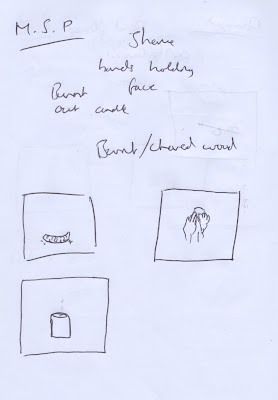 M.S.P
Shame
hands holding
face
Burnt
out candle
Burnt/charred wood